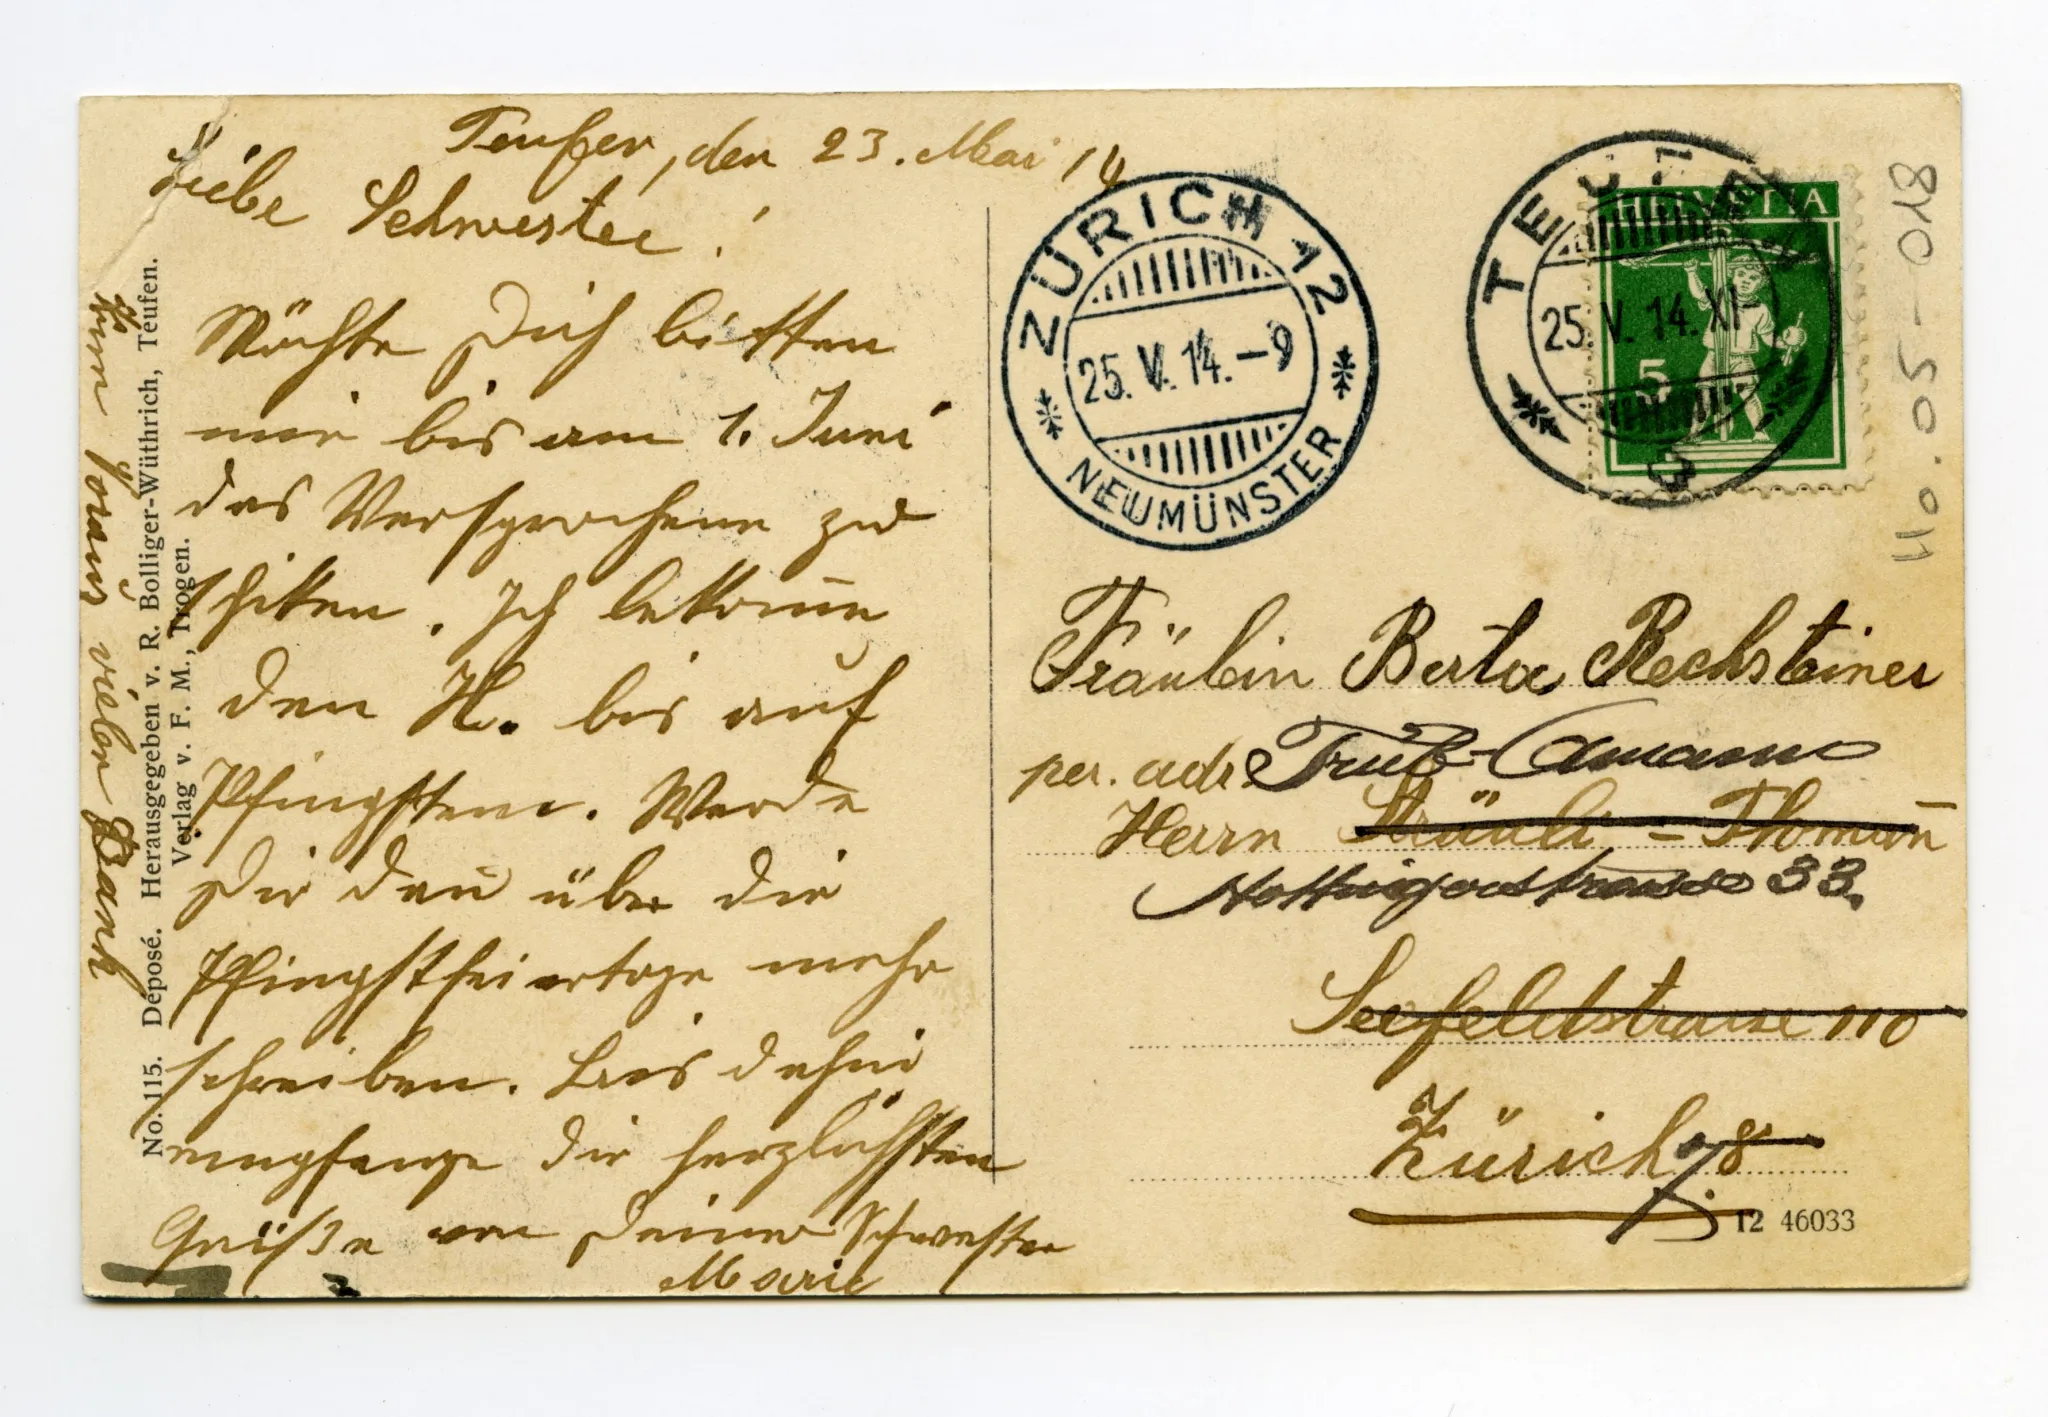 Teufen, den 23. Mai 14
Liebe Schwester!
Möchte Dich bitten
mir bis am 1. Juni
das Versprochene zu
schiken. Ich bekome
den H. bis auf
Pfingsten. Werde
Dir dan über die
Pfingstfeiertage mehr
schreiben. Bis dahin
empfange die herzlichsten
Grüße von Deiner Schwester
Marie
Zum Voraus vielen Dank
No. 115. Deposé. Herausgegeben v. R. Bolliger-Wüthrich, Teufen.
Verlag v. F. M., Trogen.
ZÜRICH 12
25. V. 14. –9
NEUMÜNSTER
TEUFEN
25. V. 14. XI–
HELVETIA
5
810-50.04
Fräulein Berta Rechsteiner
per. adr. Trüb-Amann
Herrn Sträuli-Thoman
Hottingerstrasse 33.
Seefeldstrasse 110
Zürich 8
7.
12 46033